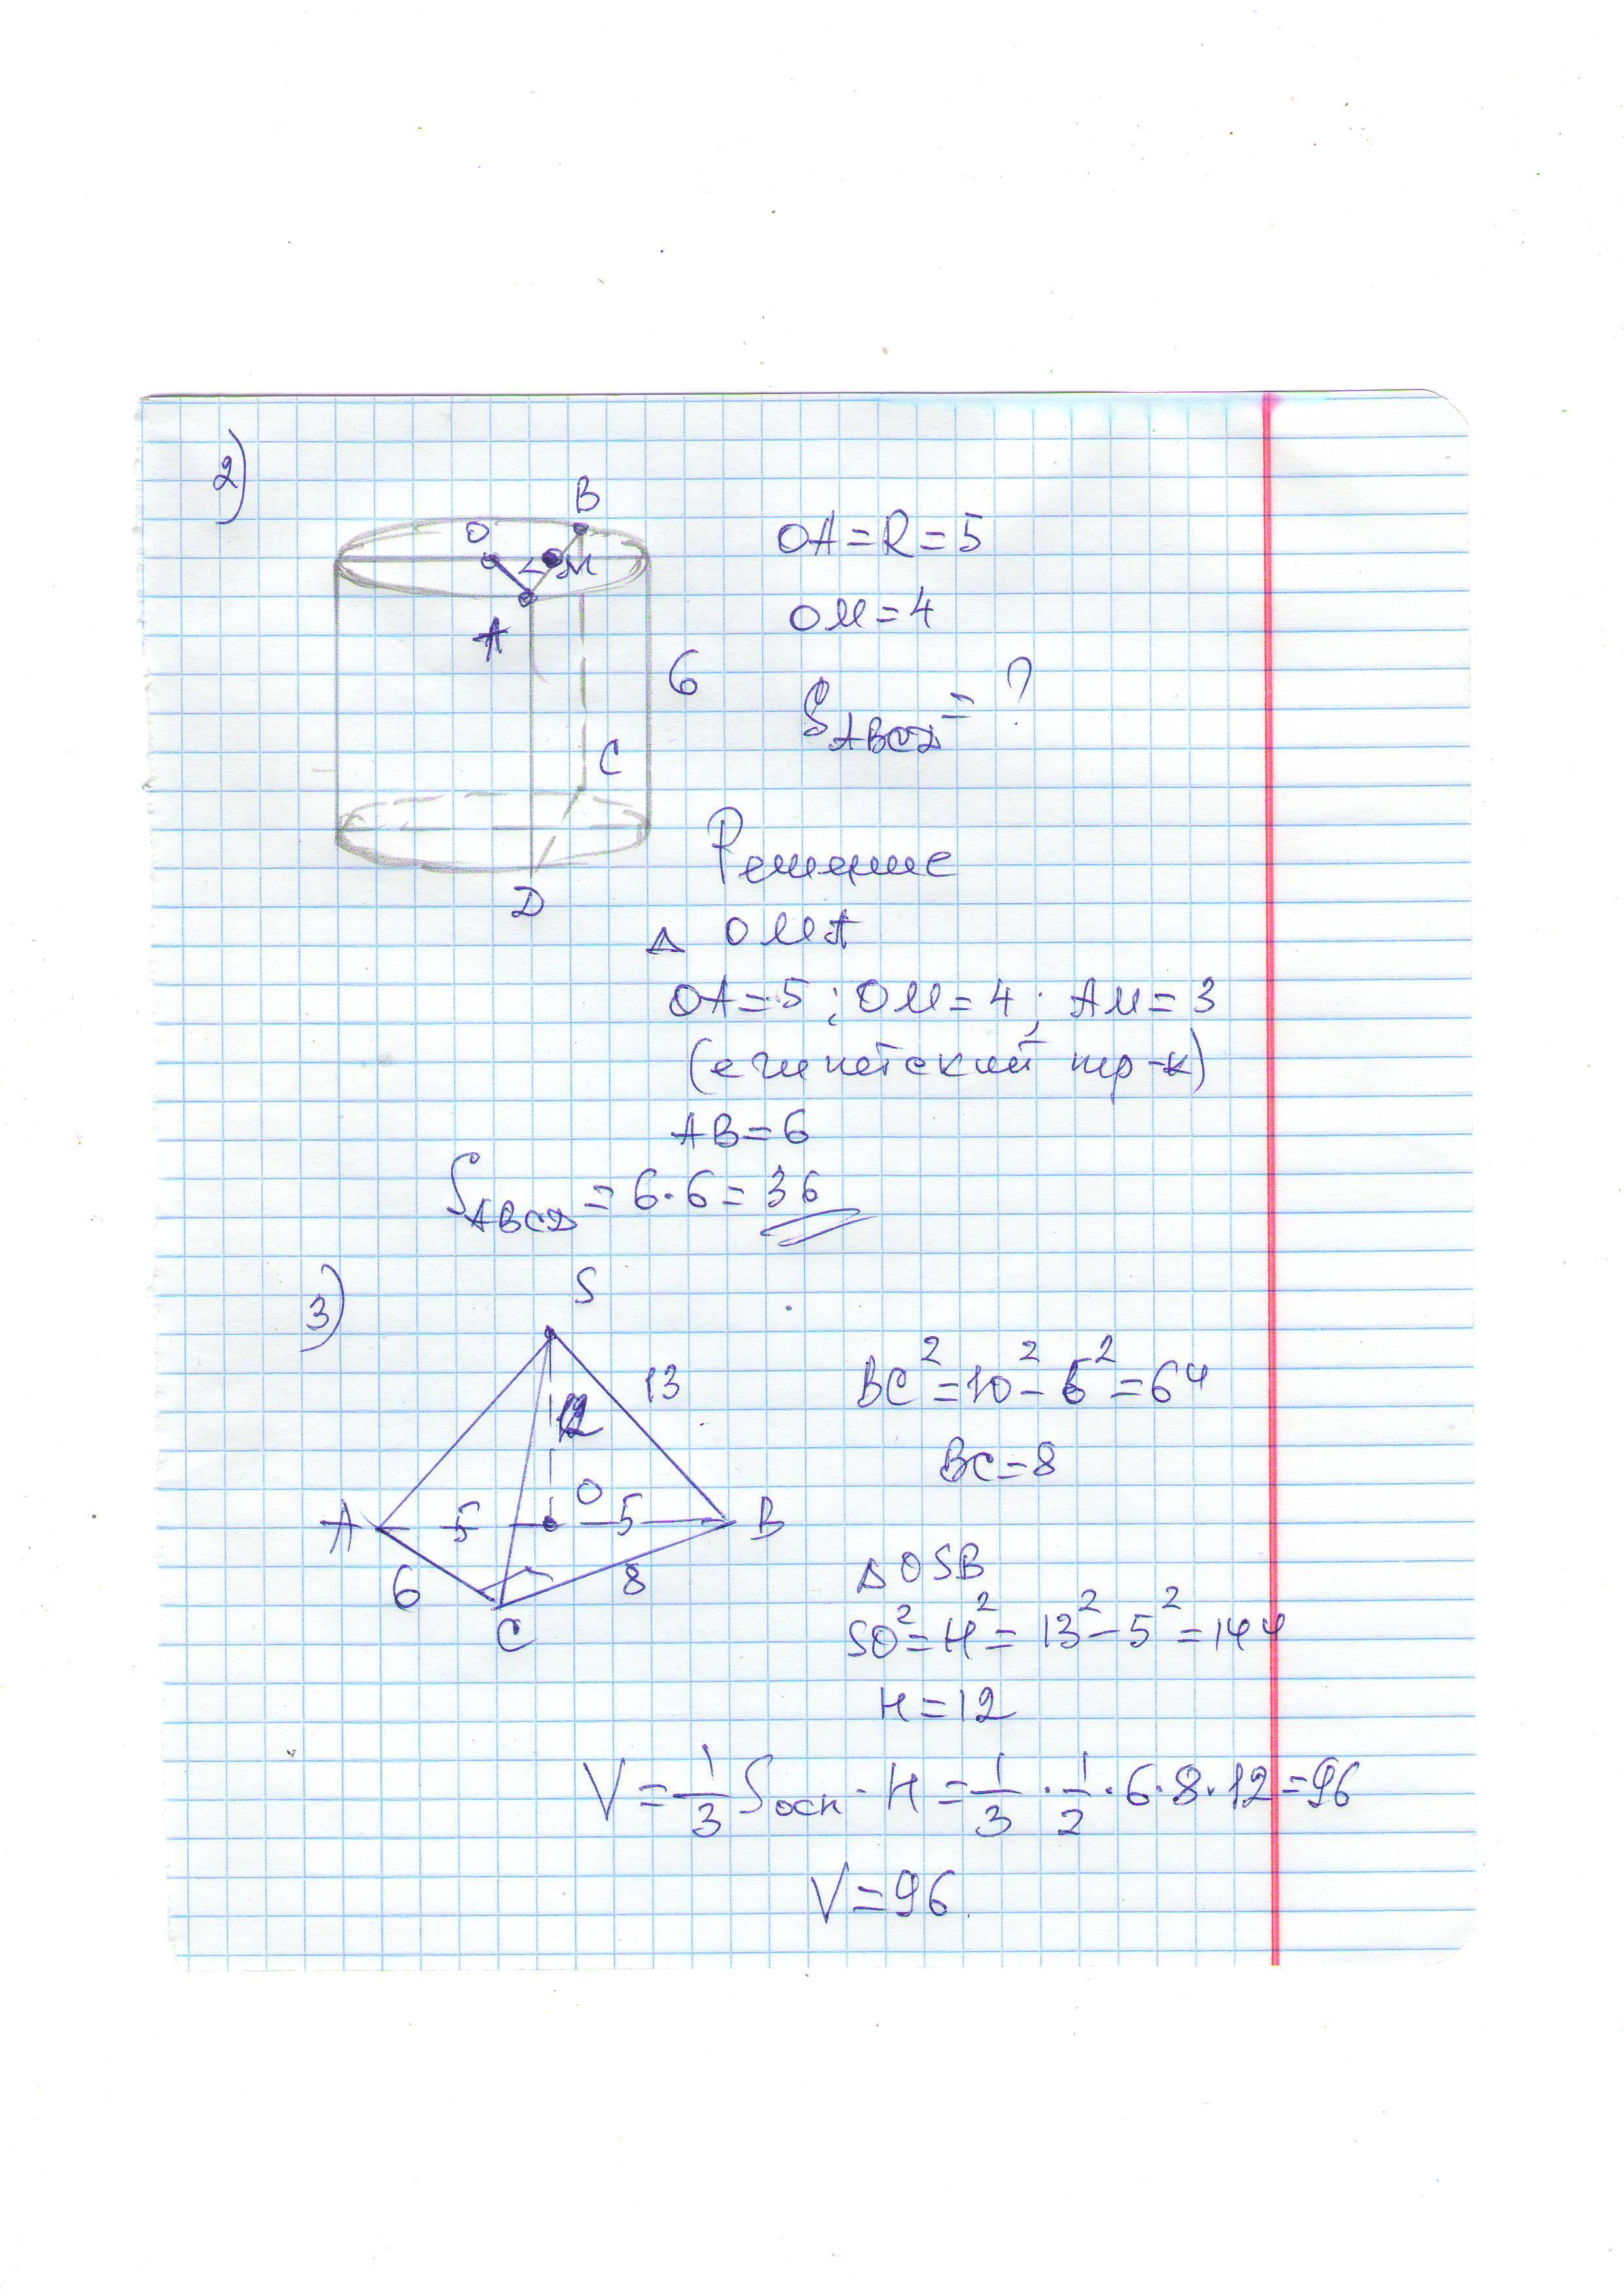 2)
B
O
M
A
6
C
D
OA = R = 5
OM = 4
S_ABCD = ?
Решение
△ OMA
OA = 5 ; OM = 4 ; AM = 3
(египетский тр-к)
AB = 6
S_ABCD = 6 · 6 = 36
3)
S
13
12
O
A 5 5 B
6 8
C
BC² = 10² - 6² = 64
BC = 8
△ OSB
SO² = H² = 13² - 5² = 144
H = 12
V = 1/3 Sосн · H = 1/3 · 1/2 · 6 · 8 · 12 = 96
V = 96.